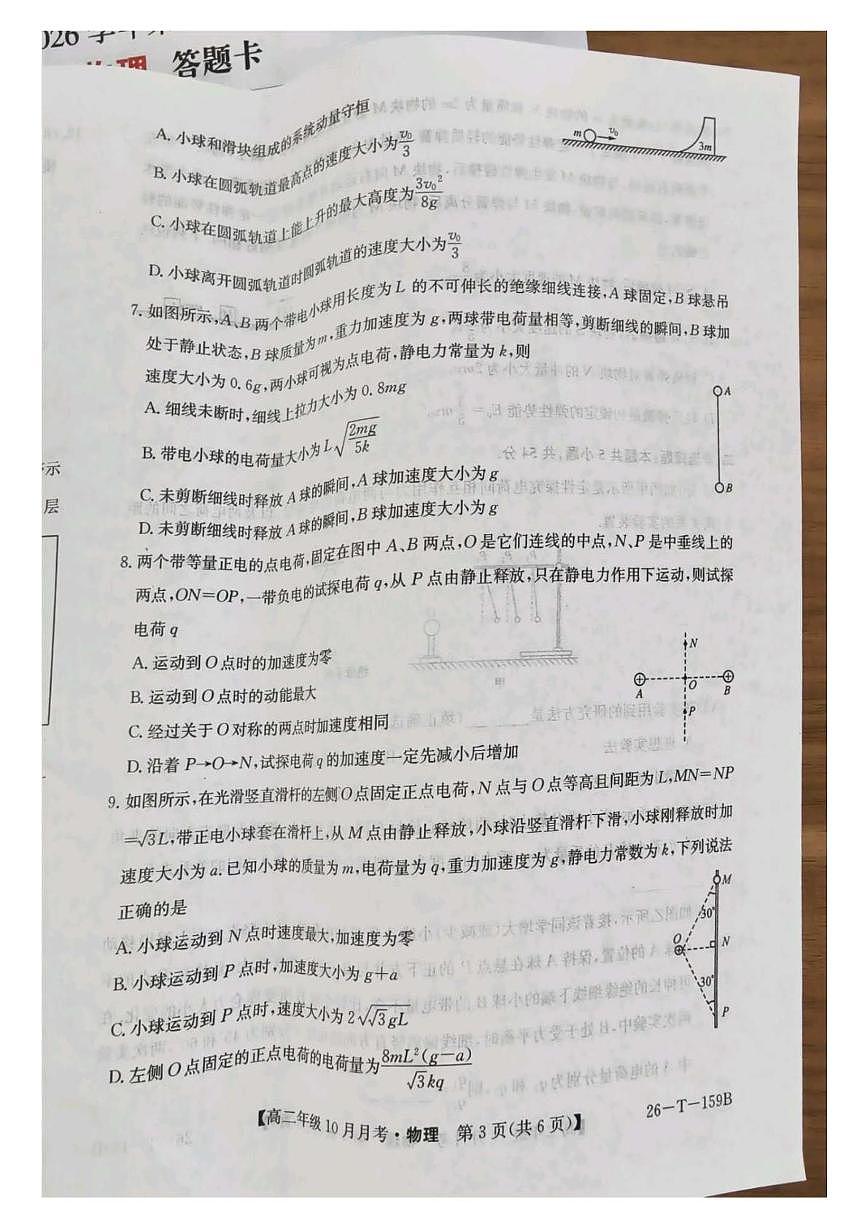 答题卡
A. 小球和滑块组成的系统动量守恒
B. 小球在圆弧轨道最高点的速度大小为v₀/3
C. 小球在圆弧轨道上能上升的最大高度为3v₀²/8g
D. 小球离开圆弧轨道时圆弧轨道的速度大小为v₀/3
m v₀
3m
7. 如图所示,A、B两个带电小球用长度为L的不可伸长的绝缘细线连接,A球固定,B球悬吊
处于静止状态,B球质量为m,重力加速度为g,两球带电荷量相等,剪断细线的瞬间,B球加
速度大小为0.6g,两小球可视为点电荷,静电力常量为k,则
A. 细线未断时,细线上拉力大小为0.8mg
B. 带电小球的电荷量大小为L√(2mg/5k)
C. 未剪断细线时释放A球的瞬间,A球加速度大小为g
D. 未剪断细线时释放A球的瞬间,B球加速度大小为g
A
B
8. 两个带等量正电的点电荷,固定在图中A、B两点,O是它们连线的中点,N、P是中垂线上的
两点,ON=OP,一带负电的试探电荷q,从P点由静止释放,只在静电力作用下运动,则试探
电荷q
A. 运动到O点时的加速度为零
B. 运动到O点时的动能最大
C. 经过关于O对称的两点时加速度相同
D. 沿着P→O→N,试探电荷q的加速度一定先减小后增加
N
A O B
P
9. 如图所示,在光滑竖直滑杆的左侧O点固定正点电荷,N点与O点等高且间距为L,MN=NP
=√3L,带正电小球套在滑杆上,从M点由静止释放,小球沿竖直滑杆下滑,小球刚释放时加
速度大小为a.已知小球的质量为m,电荷量为q,重力加速度为g,静电力常数为k,下列说法
正确的是
A. 小球运动到N点时速度最大,加速度为零
B. 小球运动到P点时,加速度大小为g+a
C. 小球运动到P点时,速度大小为2√(√3gL)
D. 左侧O点固定的正点电荷的电荷量为8mL²(g-a)/√3kq
M
30°
O N
30°
P
【高二年级10月月考·物理 第3页(共6页)】
26-T-159B
示
层